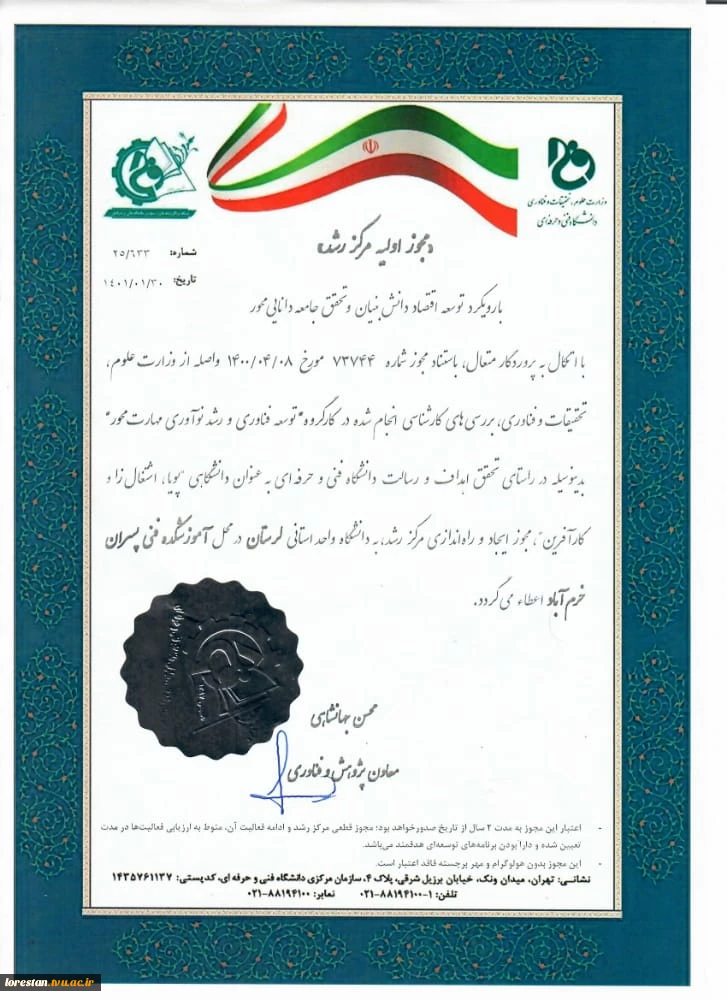 وزارت علوم، تحقیقات و فناوری
دانشگاه فنی و حرفه‌ای
«مجوز اولیه مرکز رشد»
شماره: ۲۵/۶۳۳
تاریخ: ۱۴۰۱/۰۱/۳۰
با رویکرد توسعه اقتصاد دانش بنیان و تحقق جامعه دانایی محور
با اتکال به پروردگار متعال، باستناد مجوز شماره ۷۳۷۴۴ مورخ ۱۴۰۰/۰۴/۰۸ واصله از وزارت علوم،
تحقیقات و فناوری، بررسی های کارشناسی انجام شده در کارگروه "توسعه فناوری و رشد نوآوری مهارت محور"
بدینوسیله در راستای تحقق اهداف و رسالت دانشگاه فنی و حرفه ای به عنوان دانشگاهی "پویا، اشتغال زا و
کارآفرین"، مجوز ایجاد و راه‌اندازی مرکز رشد، به دانشگاه واحد استانی لرستان در محل آموزشکده فنی پسران
خرم آباد اعطاء می گردد.
محسن جهانشاهی
معاون پژوهش و فناوری
- اعتبار این مجوز به مدت ۲ سال از تاریخ صدورخواهد بود؛ مجوز قطعی مرکز رشد و ادامه فعالیت آن، منوط به ارزیابی فعالیت‌ها در مدت
تعیین شده و دارا بودن برنامه‌های توسعه‌ای هدفمند می‌باشد.
- این مجوز بدون هولوگرام و مهر برجسته فاقد اعتبار است.
نشانی: تهران، میدان ونک، خیابان برزیل شرقی، پلاک ۴، سازمان مرکزی دانشگاه فنی و حرفه ای، کدپستی: ۱۴۳۵۷۶۱۱۳۷
تلفن: ۱-۸۸۱۹۴۱۰۰-۰۲۱ نمابر: ۸۸۱۹۴۱۰۰-۰۲۱
lorestan.tvu.ac.ir